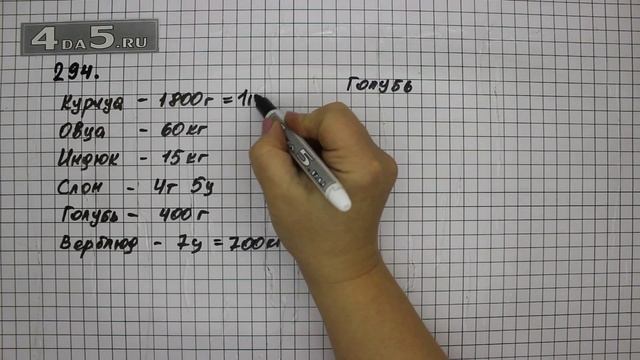 4DA5.RU
294.
Курица - 1800г = 1к
Голубь
Овца - 60кг
Индюк - 15кг
Слон - 4т 5ц
Голубь - 400г
Верблюд - 7ц = 700к